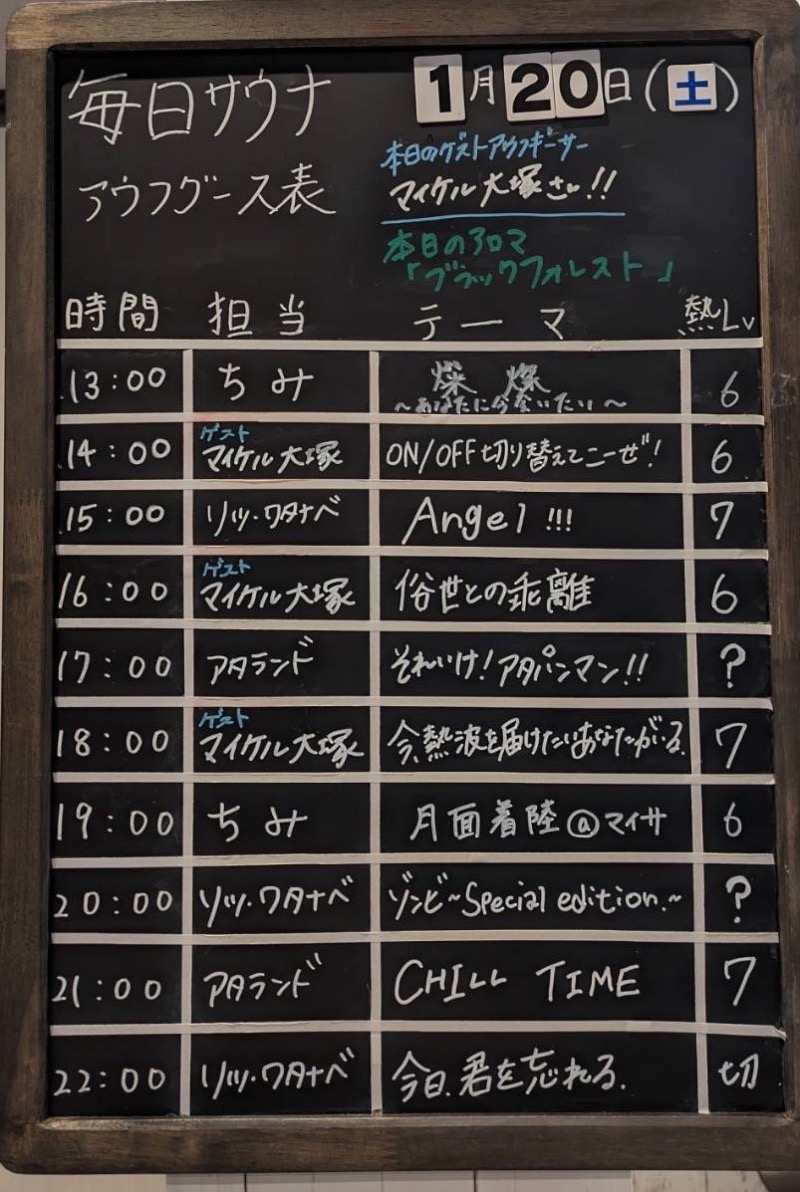 毎日サウナ
1月20日(土)
アウフグース表
本日のゲストアウフギーサー
マイケル大塚さん!!
本日のアロマ
「ブラックフォレスト」
時間 担当 テーマ 熱Lv
13:00 ちみ 燦燦 6
~あなたに今会いたい~
ゲスト
14:00 マイケル大塚 ON/OFF切り替えてこーぜ! 6
15:00 リッツ・ワタナベ Angel!!! 7
ゲスト
16:00 マイケル大塚 俗世との乖離 6
17:00 アタランド それいけ!アタパンマン!! ?
ゲスト
18:00 マイケル大塚 今、熱波を届けたいあなたがいる。 7
19:00 ちみ 月面着陸@マイサ 6
20:00 リッツ・ワタナベ ゾンビ~Special edition.~ ?
21:00 アタランド CHILL TIME 7
22:00 リッツ・ワタナベ 今日、君を忘れる。 切